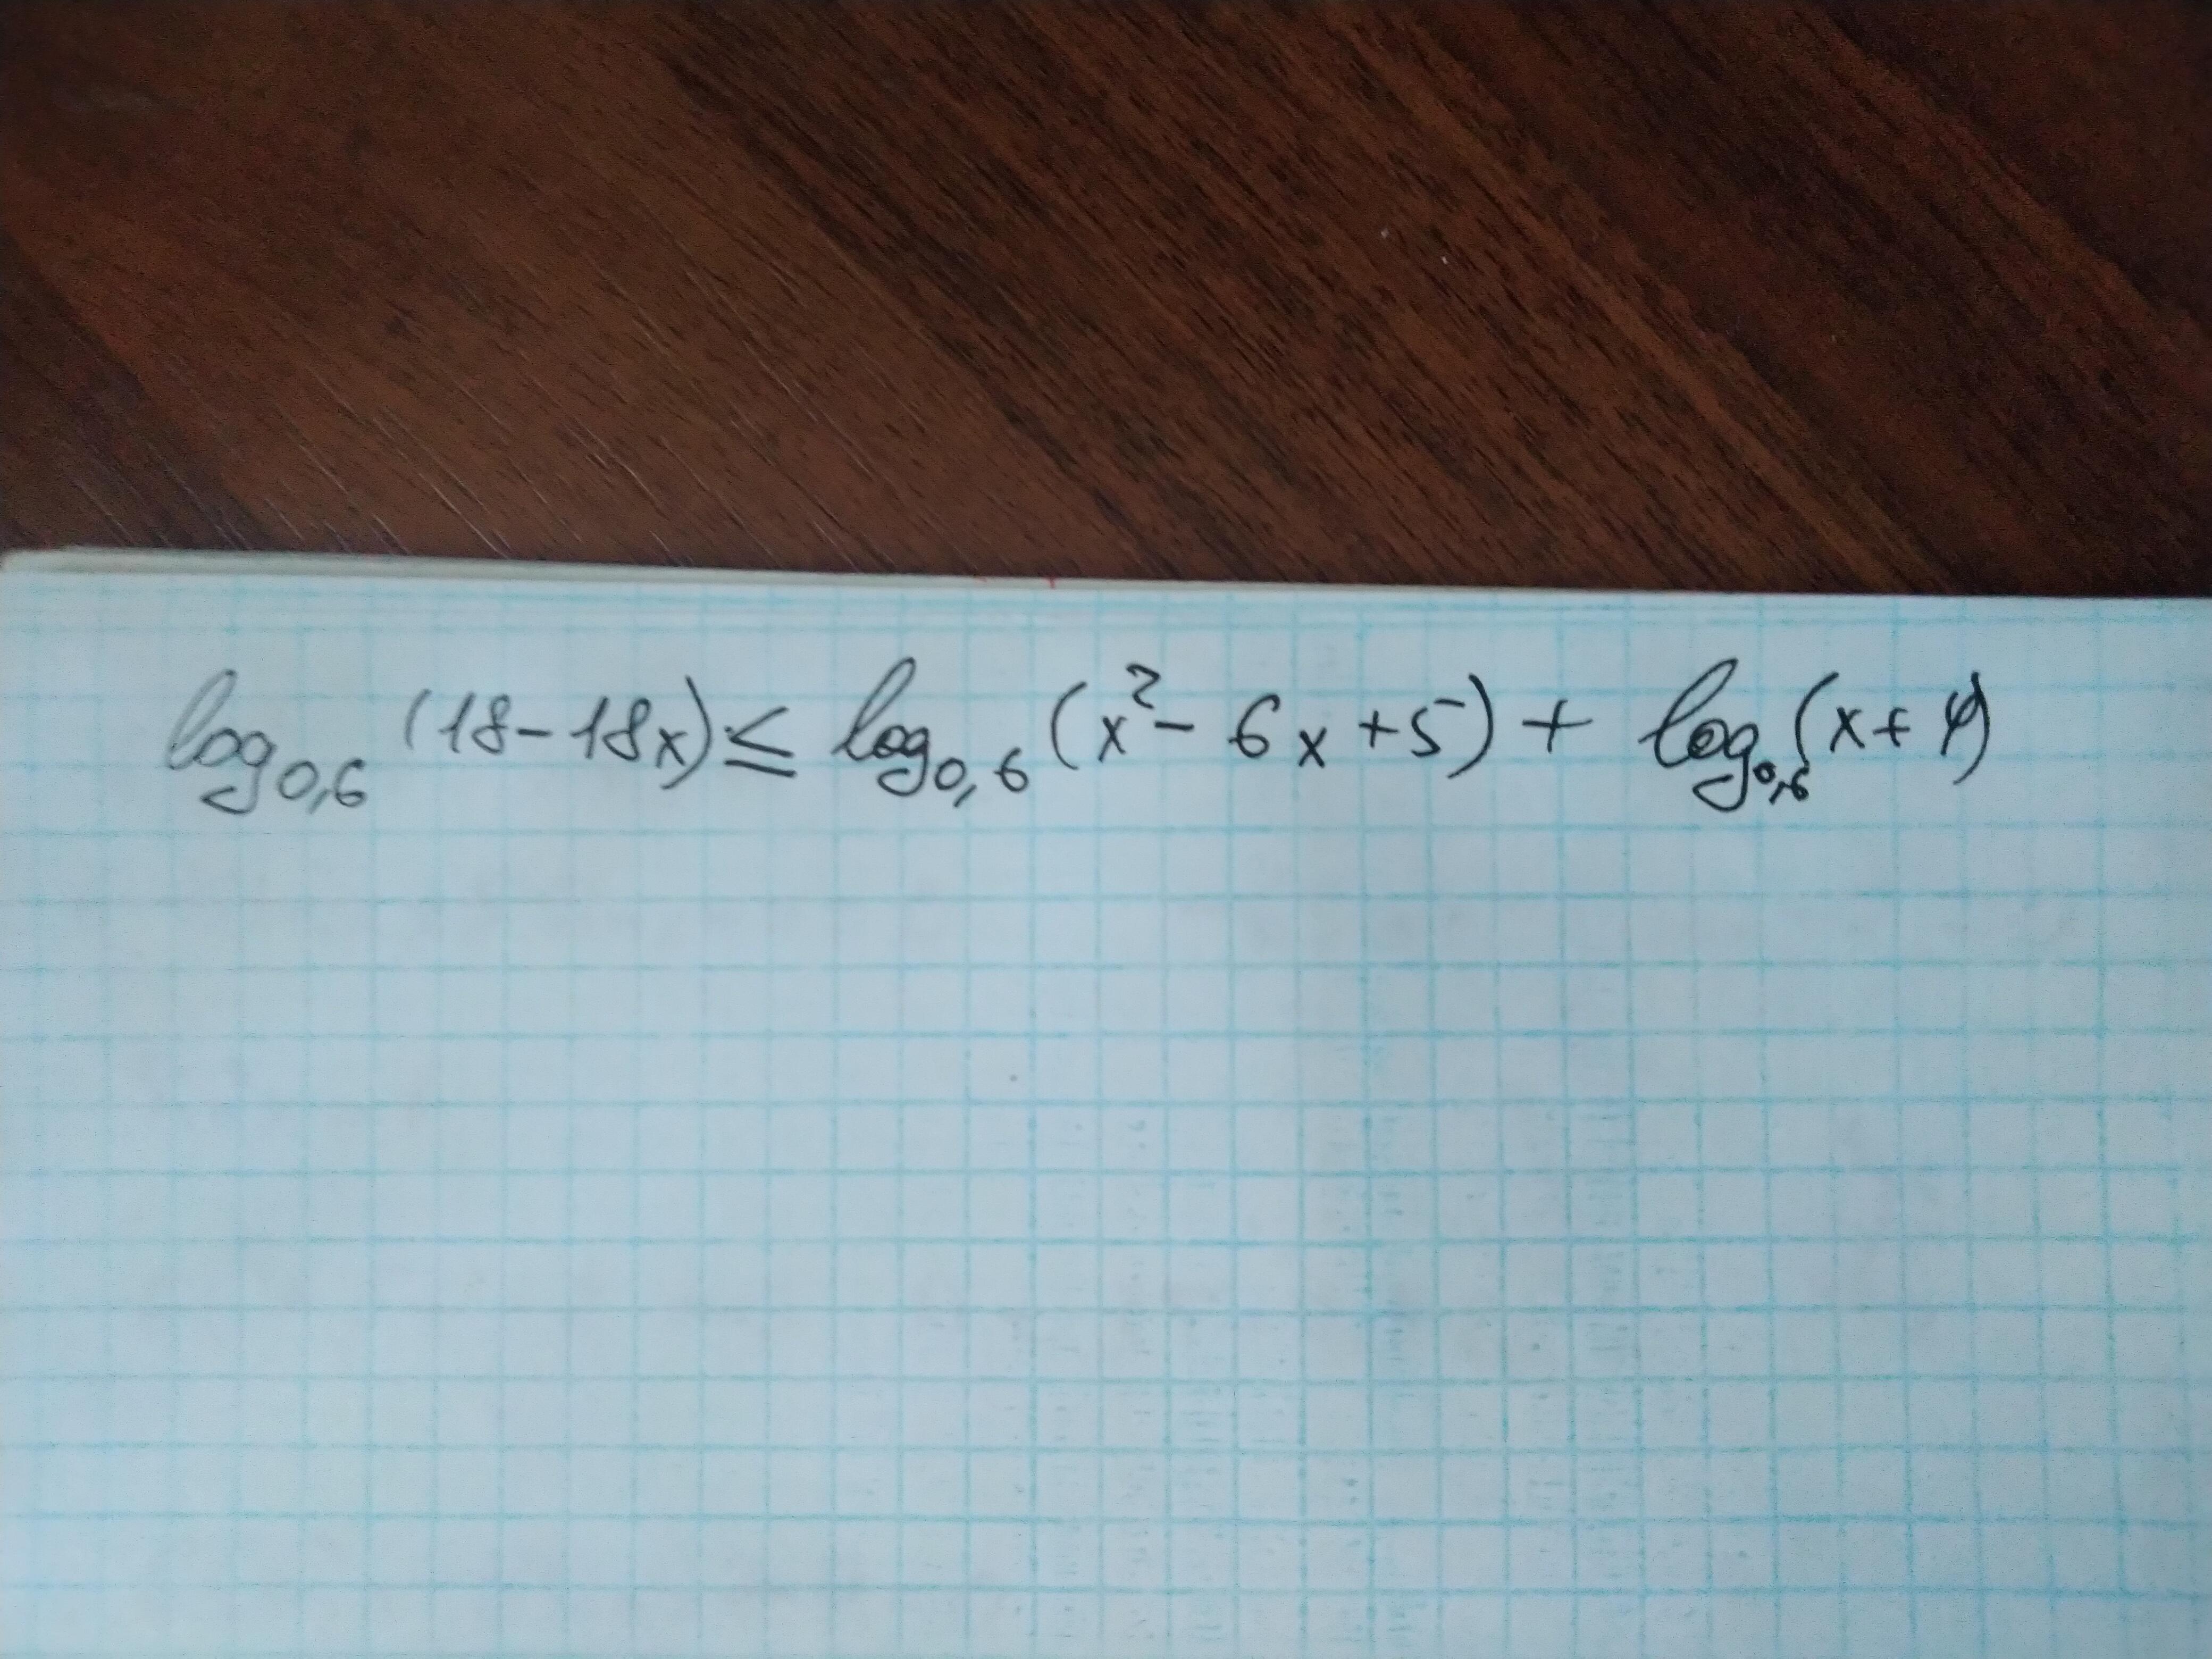 log₀,₆ (18-18x) ≤ log₀,₆ (x² - 6x + 5) + log₀,₆ (x + 4)